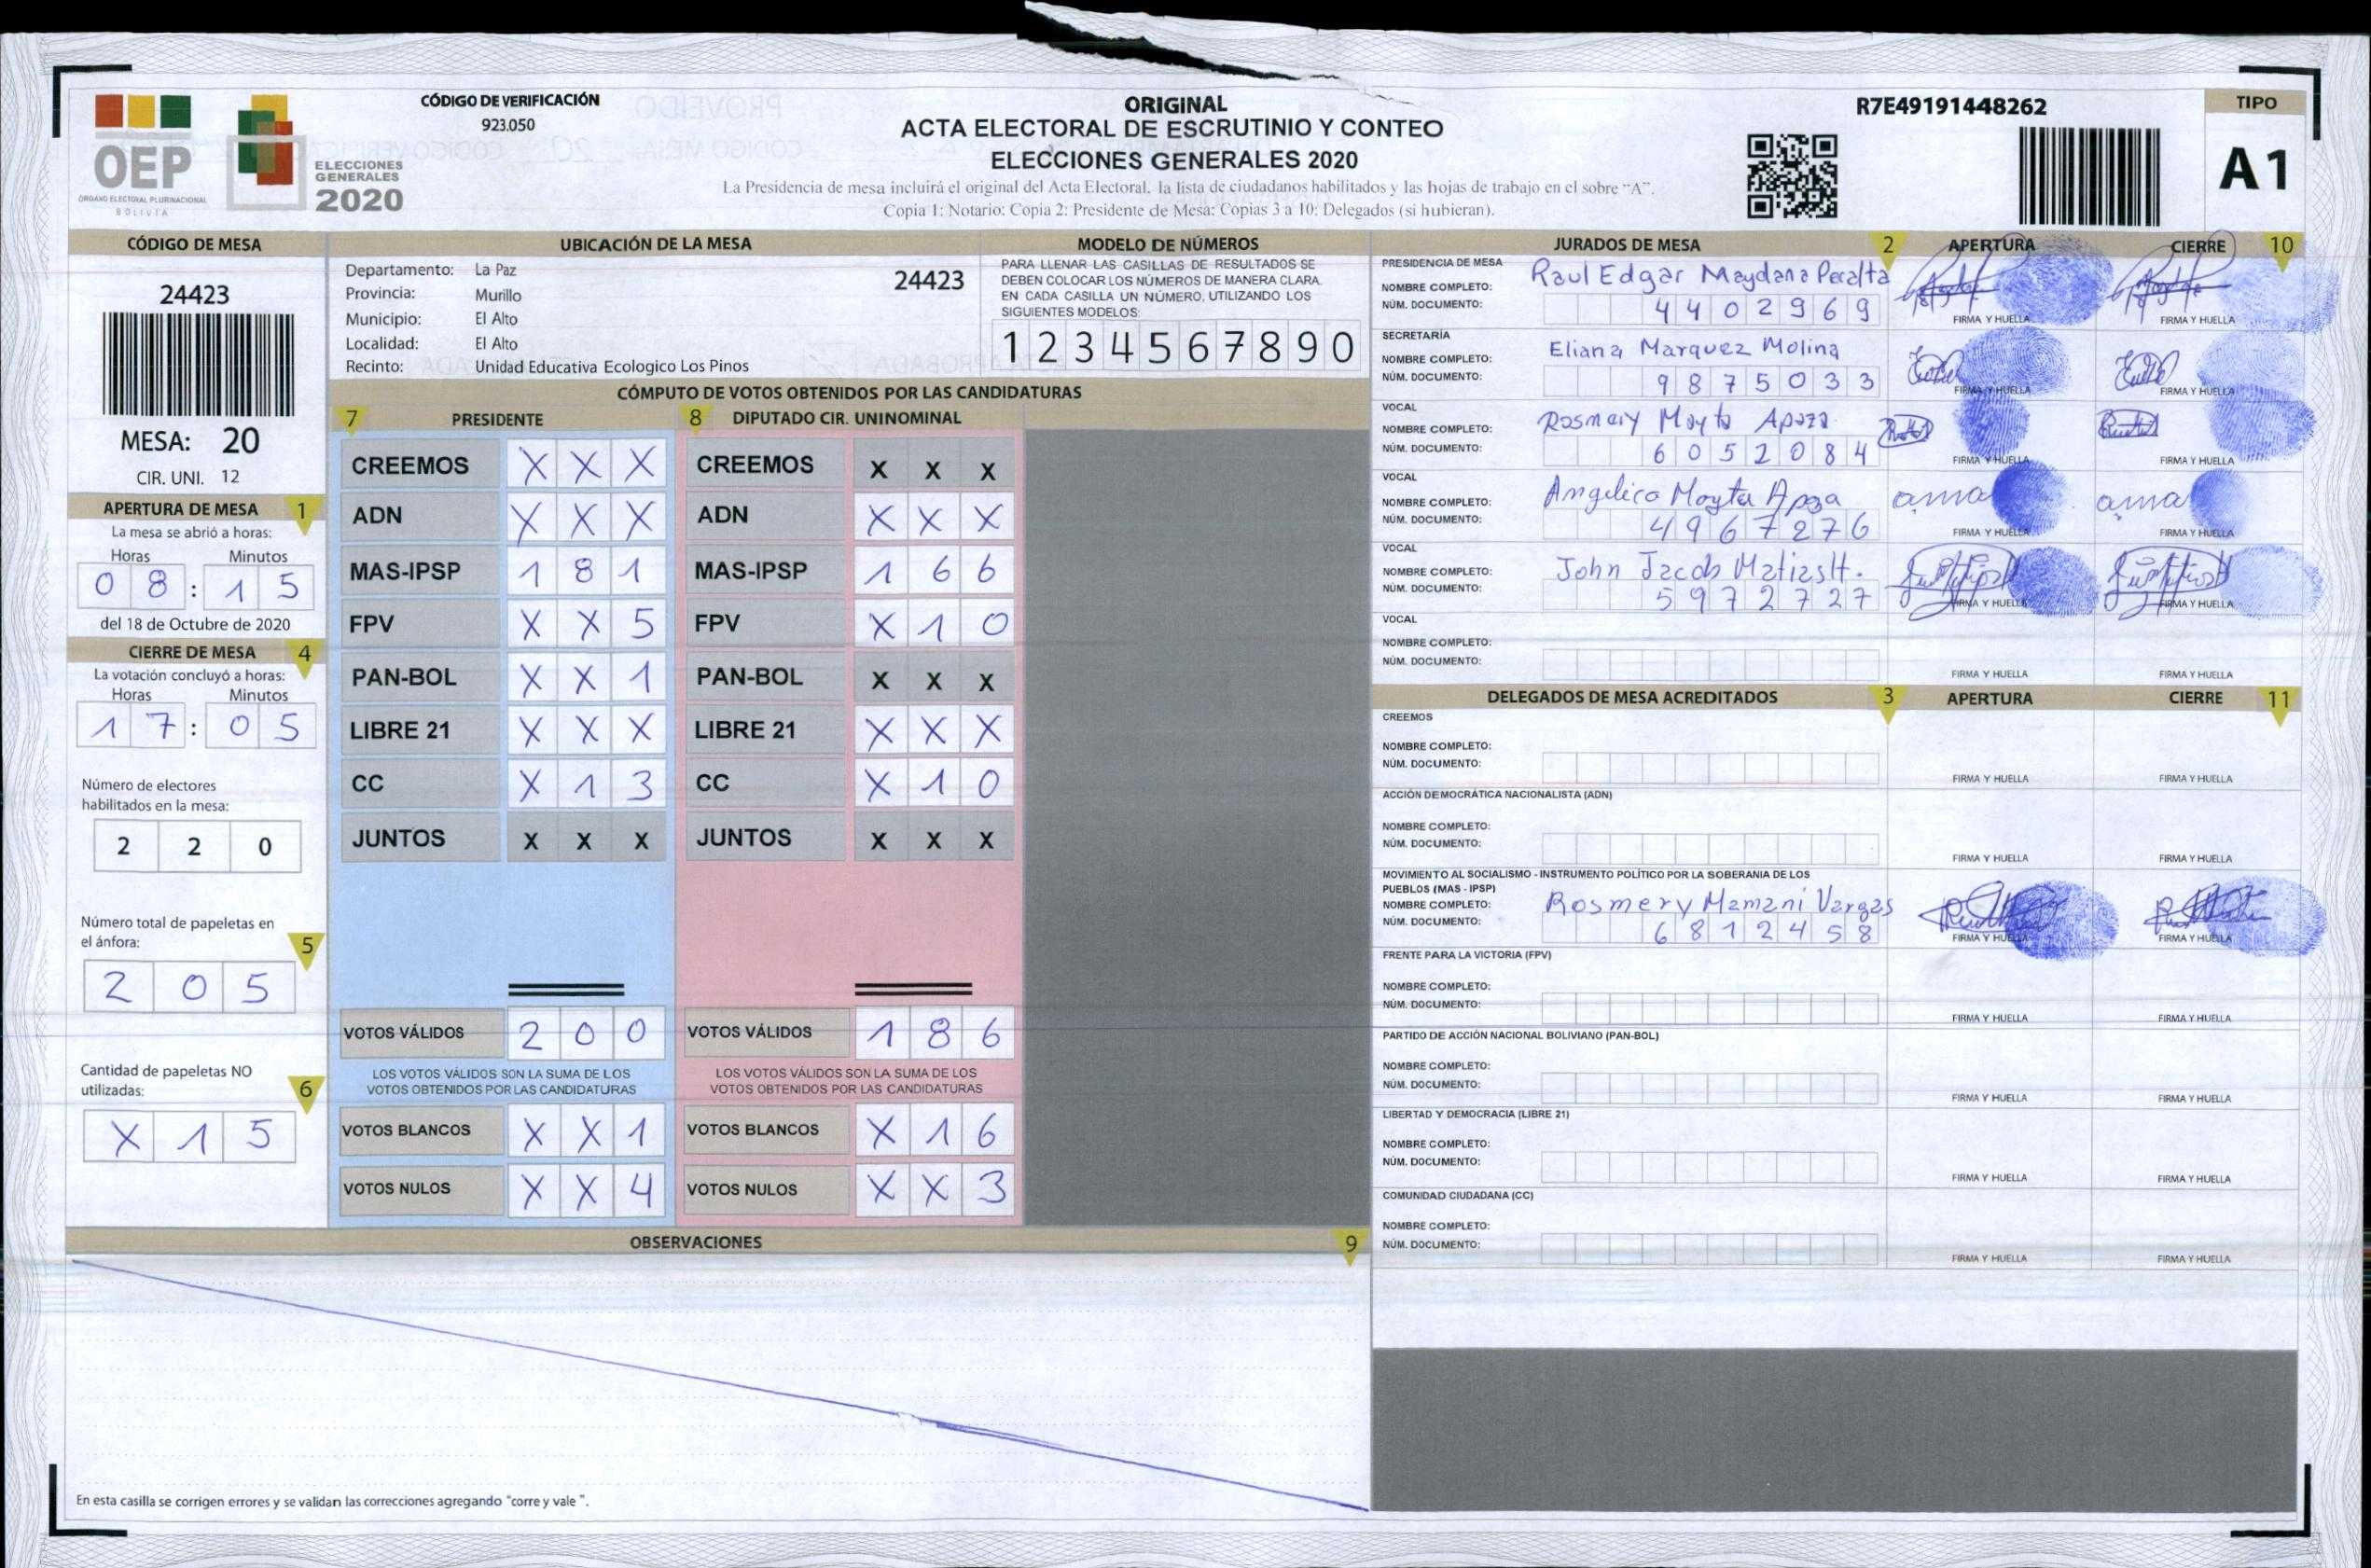 CÓDIGO DE VERIFICACIÓN
923.050
OEP
ÓRGANO ELECTORAL PLURINACIONAL
BOLIVIA
ELECCIONES
GENERALES
2020
ORIGINAL
ACTA ELECTORAL DE ESCRUTINIO Y CONTEO
ELECCIONES GENERALES 2020
La Presidencia de mesa incluirá el original del Acta Electoral, la lista de ciudadanos habilitados y las hojas de trabajo en el sobre "A".
Copia 1: Notario: Copia 2: Presidente de Mesa: Copias 3 a 10: Delegados (si hubieran).
R7E49191448262
TIPO
A1
CÓDIGO DE MESA
24423
MESA: 20
CIR. UNI. 12
APERTURA DE MESA 1
La mesa se abrió a horas:
Horas Minutos
08:15
del 18 de Octubre de 2020
CIERRE DE MESA 4
La votación concluyó a horas:
Horas Minutos
17:05
Número de electores
habilitados en la mesa:
2 2 0
Número total de papeletas en
el ánfora: 5
2 0 5
Cantidad de papeletas NO
utilizadas: 6
X 1 5
UBICACIÓN DE LA MESA
Departamento: La Paz 24423
Provincia: Murillo
Municipio: El Alto
Localidad: El Alto
Recinto: Unidad Educativa Ecologico Los Pinos
MODELO DE NÚMEROS
PARA LLENAR LAS CASILLAS DE RESULTADOS SE
DEBEN COLOCAR LOS NÚMEROS DE MANERA CLARA.
EN CADA CASILLA UN NÚMERO, UTILIZANDO LOS
SIGUIENTES MODELOS:
1 2 3 4 5 6 7 8 9 0
CÓMPUTO DE VOTOS OBTENIDOS POR LAS CANDIDATURAS
7 PRESIDENTE 8 DIPUTADO CIR. UNINOMINAL
CREEMOS X X X CREEMOS X X X
ADN X X X ADN X X X
MAS-IPSP 1 8 1 MAS-IPSP 1 6 6
FPV X X 5 FPV X 1 0
PAN-BOL X X 1 PAN-BOL X X X
LIBRE 21 X X X LIBRE 21 X X X
CC X 1 3 CC X 1 0
JUNTOS X X X JUNTOS X X X
VOTOS VÁLIDOS 2 0 0 VOTOS VÁLIDOS 1 8 6
LOS VOTOS VÁLIDOS SON LA SUMA DE LOS LOS VOTOS VÁLIDOS SON LA SUMA DE LOS
VOTOS OBTENIDOS POR LAS CANDIDATURAS VOTOS OBTENIDOS POR LAS CANDIDATURAS
VOTOS BLANCOS X X 1 VOTOS BLANCOS X 1 6
VOTOS NULOS X X 4 VOTOS NULOS X X 3
OBSERVACIONES 9
En esta casilla se corrigen errores y se validan las correcciones agregando "corre y vale ".
JURADOS DE MESA 2 APERTURA CIERRE 10
PRESIDENCIA DE MESA
NOMBRE COMPLETO: Raul Edgar Maydana Peralta
NÚM. DOCUMENTO: 4402969
FIRMA Y HUELLA FIRMA Y HUELLA
SECRETARÍA
NOMBRE COMPLETO: Eliana Marquez Molina
NÚM. DOCUMENTO: 9875033
FIRMA Y HUELLA FIRMA Y HUELLA
VOCAL
NOMBRE COMPLETO: Rosmery Mayta Apaza
NÚM. DOCUMENTO: 6052084
FIRMA Y HUELLA FIRMA Y HUELLA
VOCAL
NOMBRE COMPLETO: Angelica Mayta Apza
NÚM. DOCUMENTO: 4967276
ama ama
FIRMA Y HUELLA FIRMA Y HUELLA
VOCAL
NOMBRE COMPLETO: John Jacob Matias H.
NÚM. DOCUMENTO: 5972727
FIRMA Y HUELLA FIRMA Y HUELLA
VOCAL
NOMBRE COMPLETO:
NÚM. DOCUMENTO:
FIRMA Y HUELLA FIRMA Y HUELLA
DELEGADOS DE MESA ACREDITADOS 3 APERTURA CIERRE 11
CREEMOS
NOMBRE COMPLETO:
NÚM. DOCUMENTO:
FIRMA Y HUELLA FIRMA Y HUELLA
ACCIÓN DEMOCRÁTICA NACIONALISTA (ADN)
NOMBRE COMPLETO:
NÚM. DOCUMENTO:
FIRMA Y HUELLA FIRMA Y HUELLA
MOVIMIENTO AL SOCIALISMO - INSTRUMENTO POLÍTICO POR LA SOBERANIA DE LOS
PUEBLOS (MAS - IPSP)
NOMBRE COMPLETO: Rosmery Mamani Vargas
NÚM. DOCUMENTO: 6812458
FIRMA Y HUELLA FIRMA Y HUELLA
FRENTE PARA LA VICTORIA (FPV)
NOMBRE COMPLETO:
NÚM. DOCUMENTO:
FIRMA Y HUELLA FIRMA Y HUELLA
PARTIDO DE ACCIÓN NACIONAL BOLIVIANO (PAN-BOL)
NOMBRE COMPLETO:
NÚM. DOCUMENTO:
FIRMA Y HUELLA FIRMA Y HUELLA
LIBERTAD Y DEMOCRACIA (LIBRE 21)
NOMBRE COMPLETO:
NÚM. DOCUMENTO:
FIRMA Y HUELLA FIRMA Y HUELLA
COMUNIDAD CIUDADANA (CC)
NOMBRE COMPLETO:
NÚM. DOCUMENTO:
FIRMA Y HUELLA FIRMA Y HUELLA